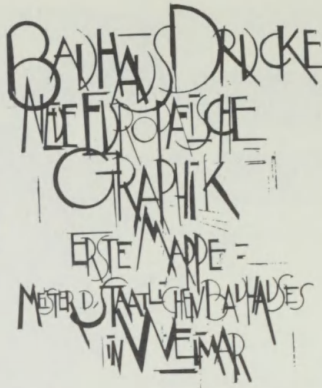 BAUHAUS DRUCKE
NEUE EUROPÆISCHE
GRAPHIK
IM
ERSTE MAPPE
MEISTER D. STAATLICHEN BAUHAUSES
IN WEIMAR